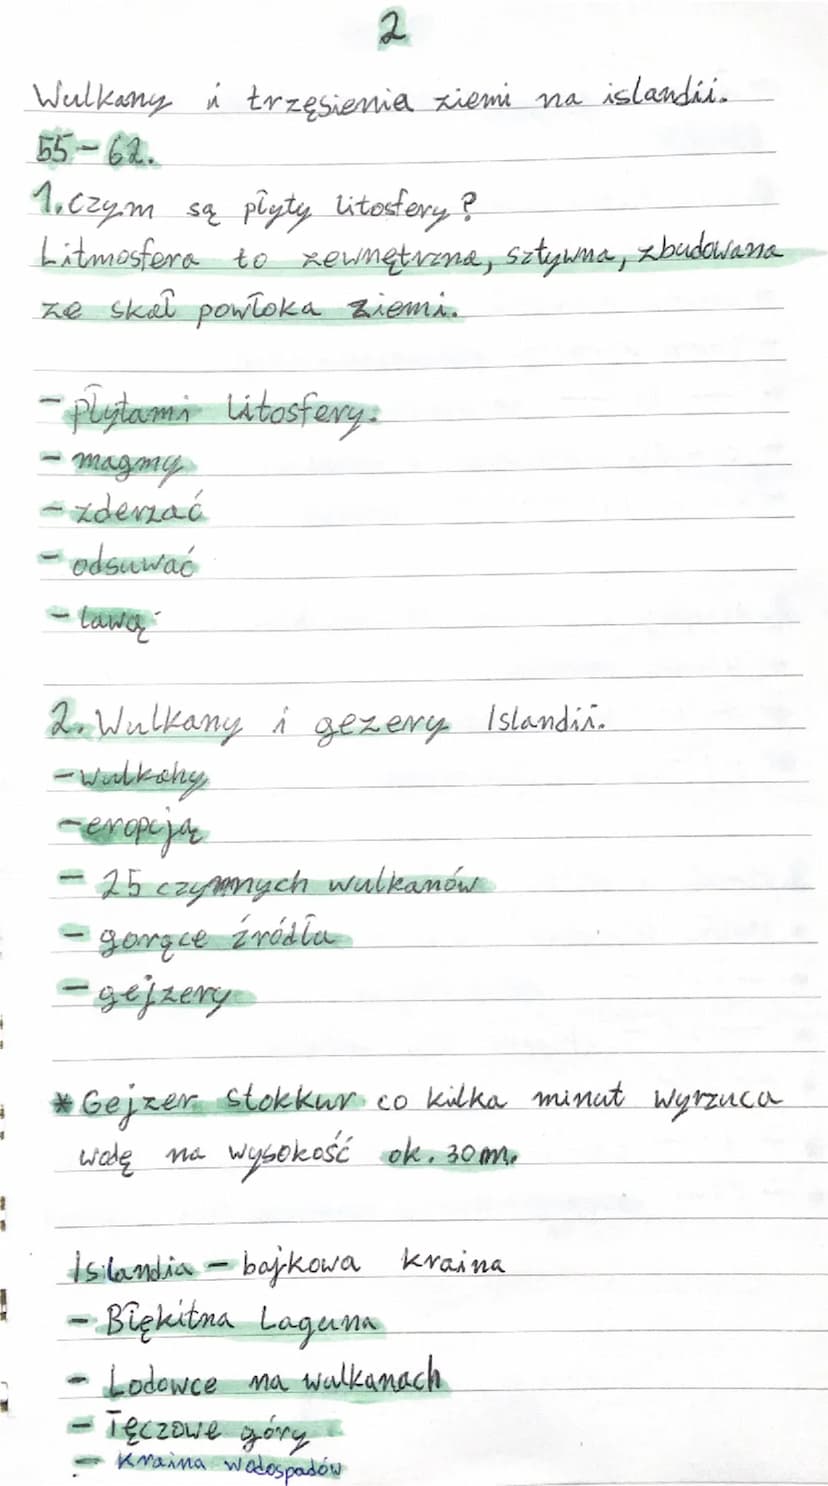 2
Wulkany i trzęsienia ziemi na islandii.
55-62.
1. Czym są płyty litosfery?
Litmosfera to zewnętrzna, sztywna, zbudowana
ze skał powłoka ziemi.
- płytami litosfery.
- magmy
- zderzać
- odsuwać
- lawą
2. Wulkany i gezery Islandii.
- wulkany
- eropcją
- 25 czynnych wulkanów
- gorące źródła
- gejzery
* Gejzer Stokkur co kilka minut wyrzuca
wodę na wysokość ok. 30 m.
Islandia - bajkowa kraina
- Błękitna Laguna
- Lodowce na wulkanach
- Tęczowe góry
- Kraina wodospadów